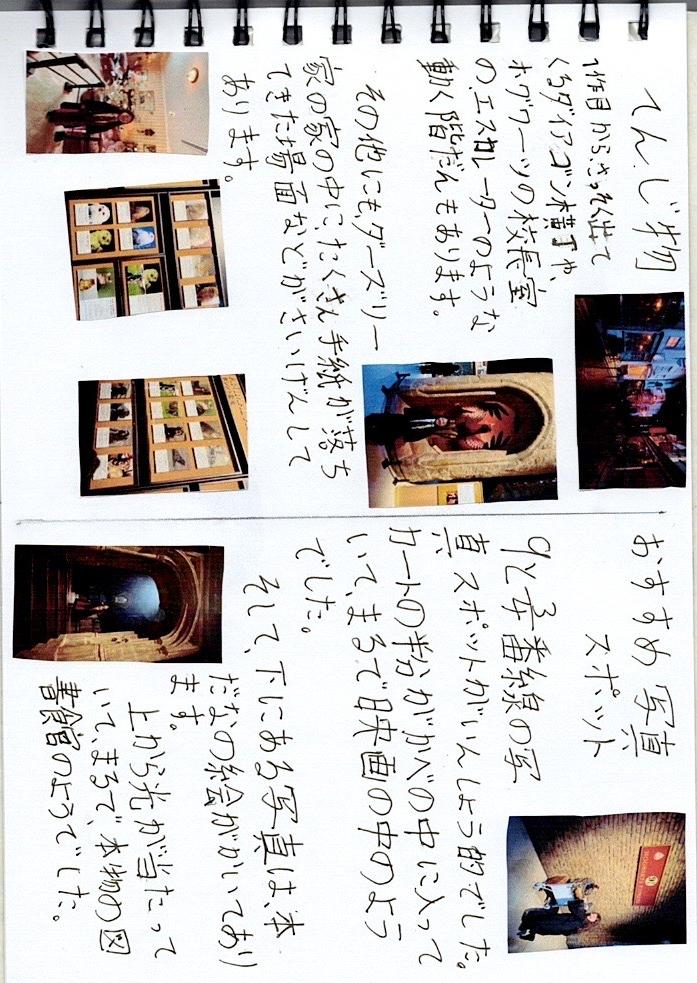 てんじ物
1作目からさっそく出て
くるダイアゴン横丁や、
ホグワーツの校長室
の、エスカレーターのような
動く階だんもあります。
その他にも、ダーズリー
家の家の中に、たくさん手紙が落ち
てきた場面などがさいげんして
あります。
おすすめ写真
スポット
9と3/4番線の写
真スポットがいんしょう的でした。
カートの半分がかべの中に入って
いて、まるで映画の中のよう
でした。
そして、下にある写真は、本
だなの絵がかいてあり
ます。
上から光が当たって
いて、まるで、本物の図
書館のようでした。